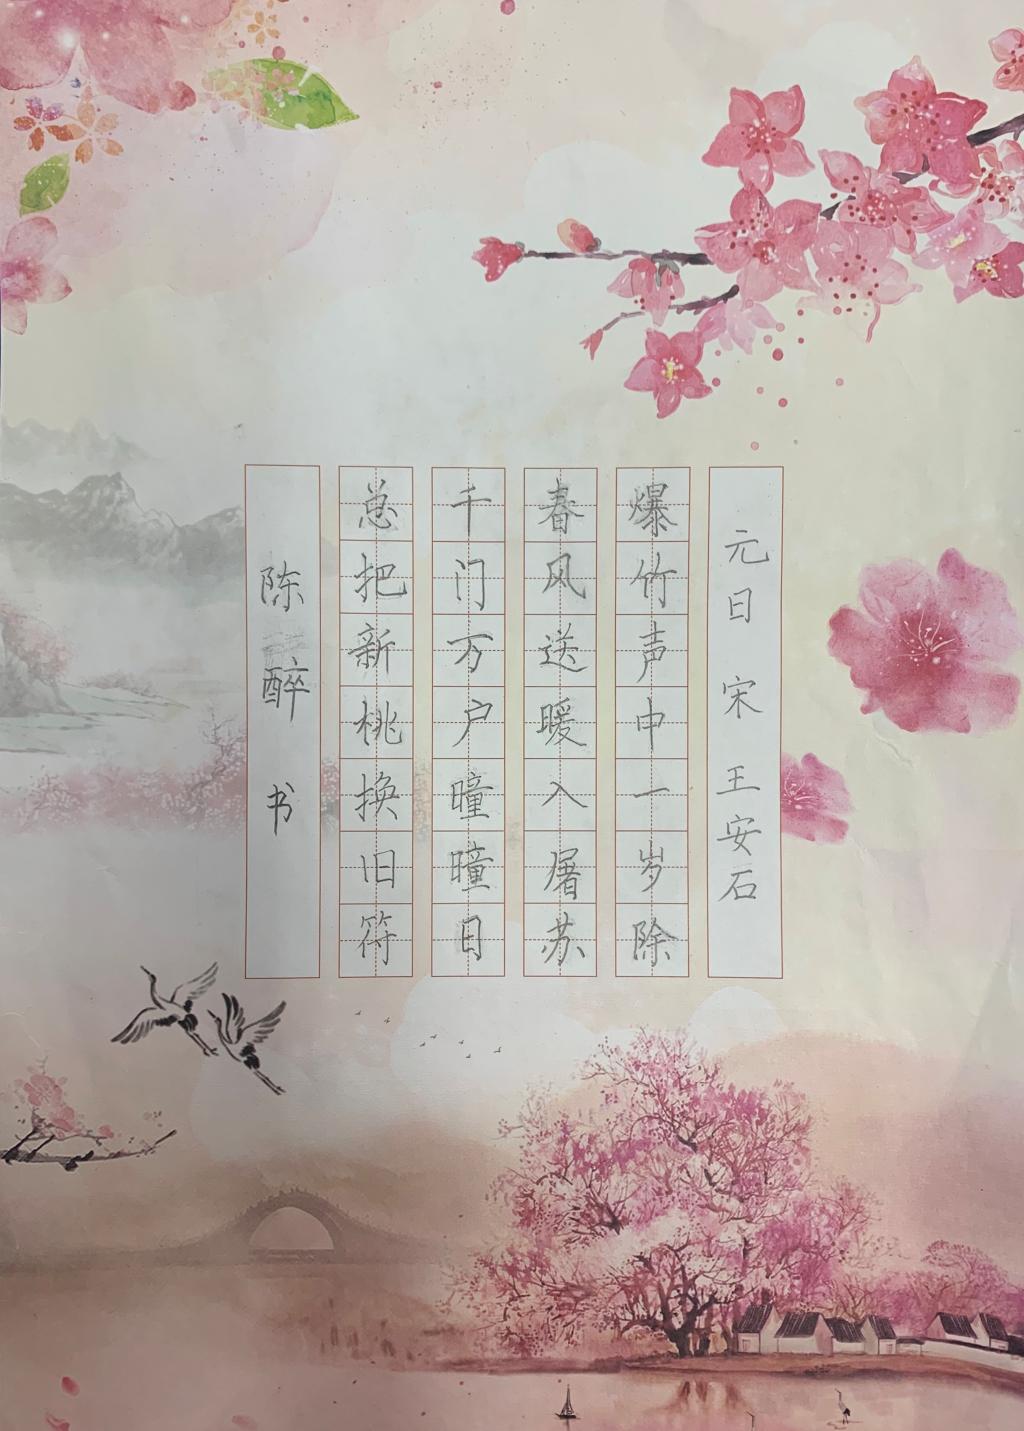 元日 宋 王安石
爆竹声中一岁除
春风送暖入屠苏
千门万户曈曈日
总把新桃换旧符
陈醉书